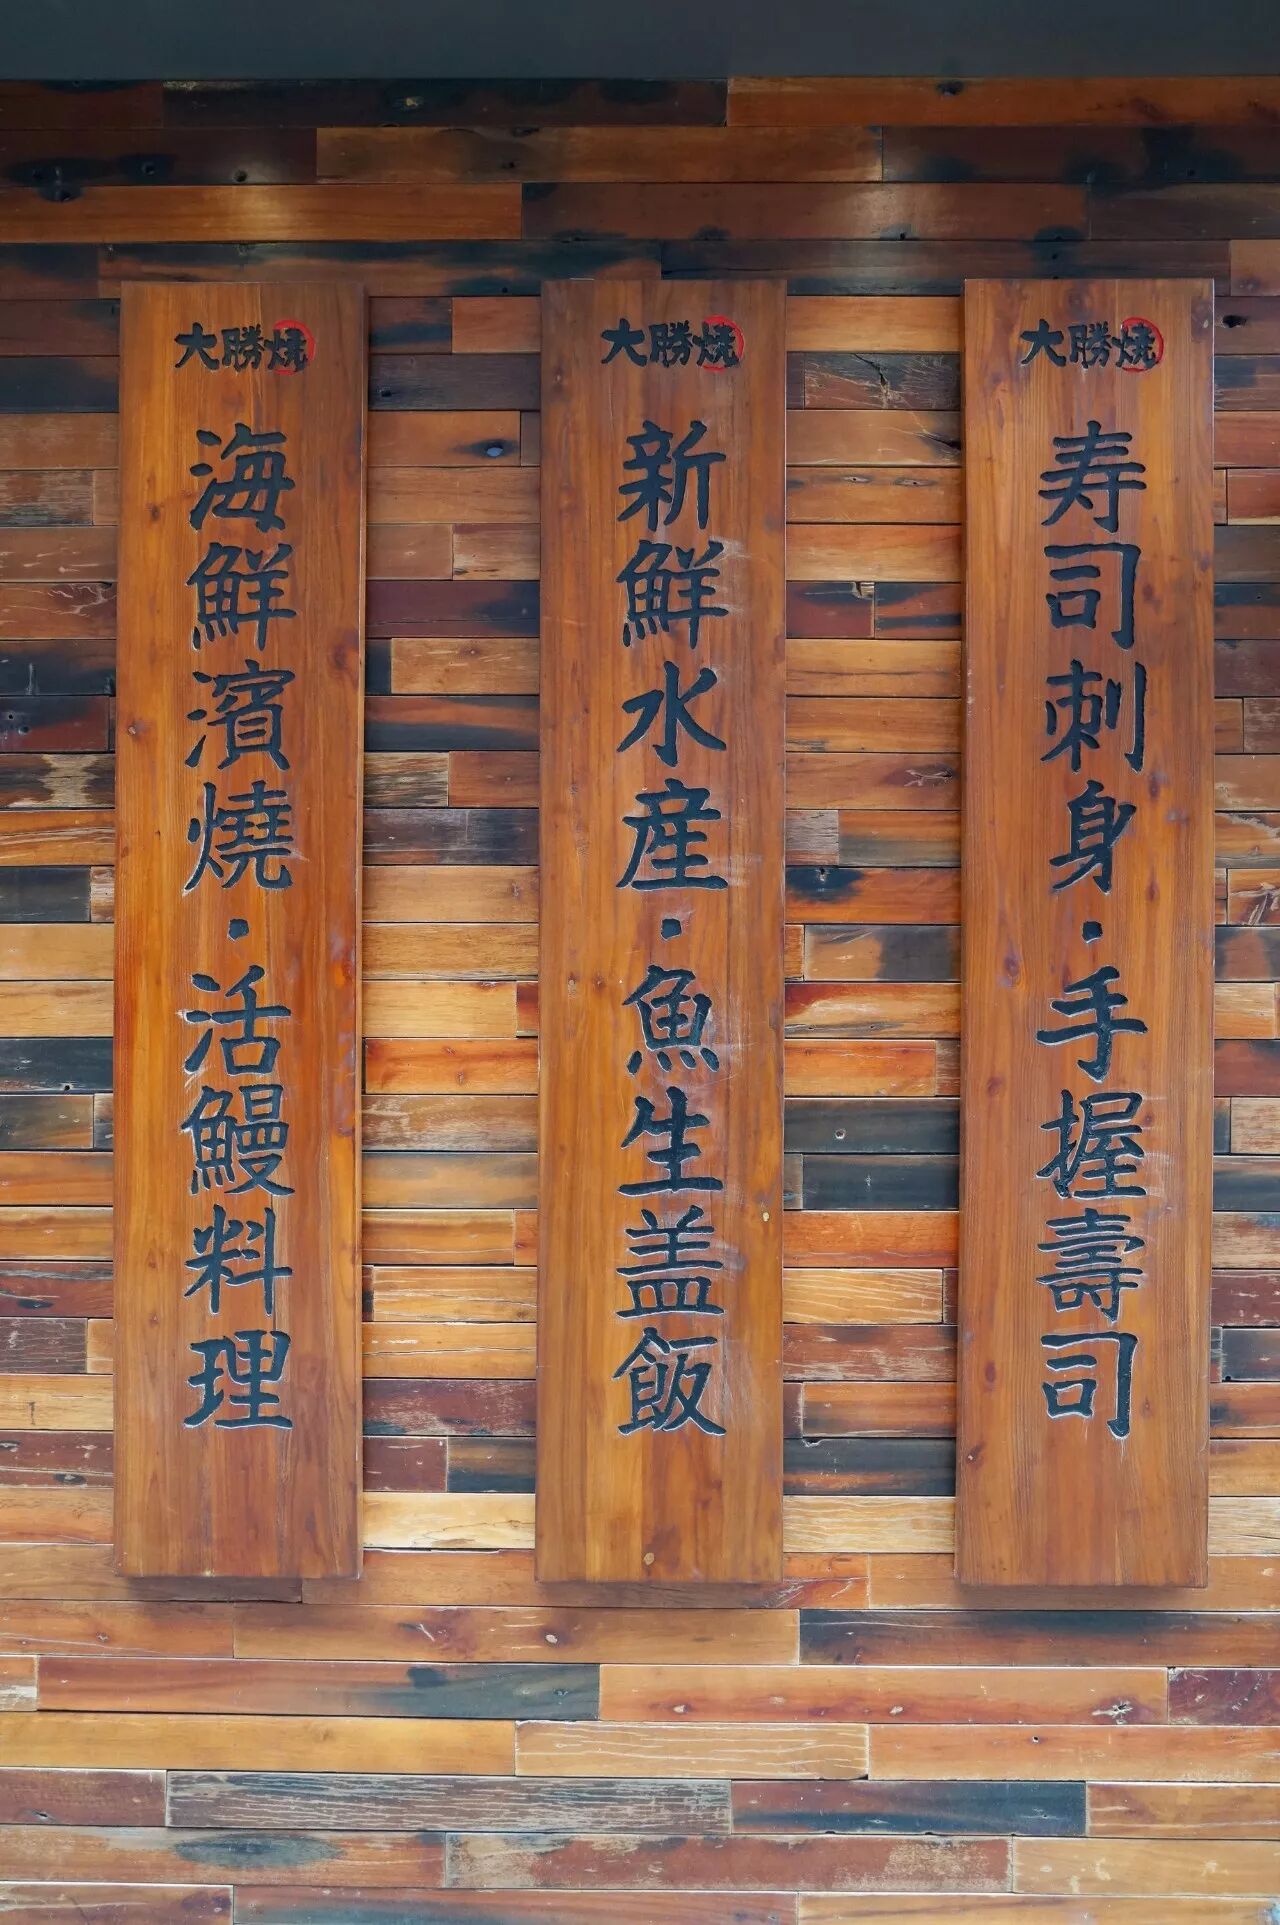 大勝燒
寿司刺身·手握壽司
大勝燒
新鮮水産·魚生盖飯
大勝燒
海鮮濱燒·活鰻料理